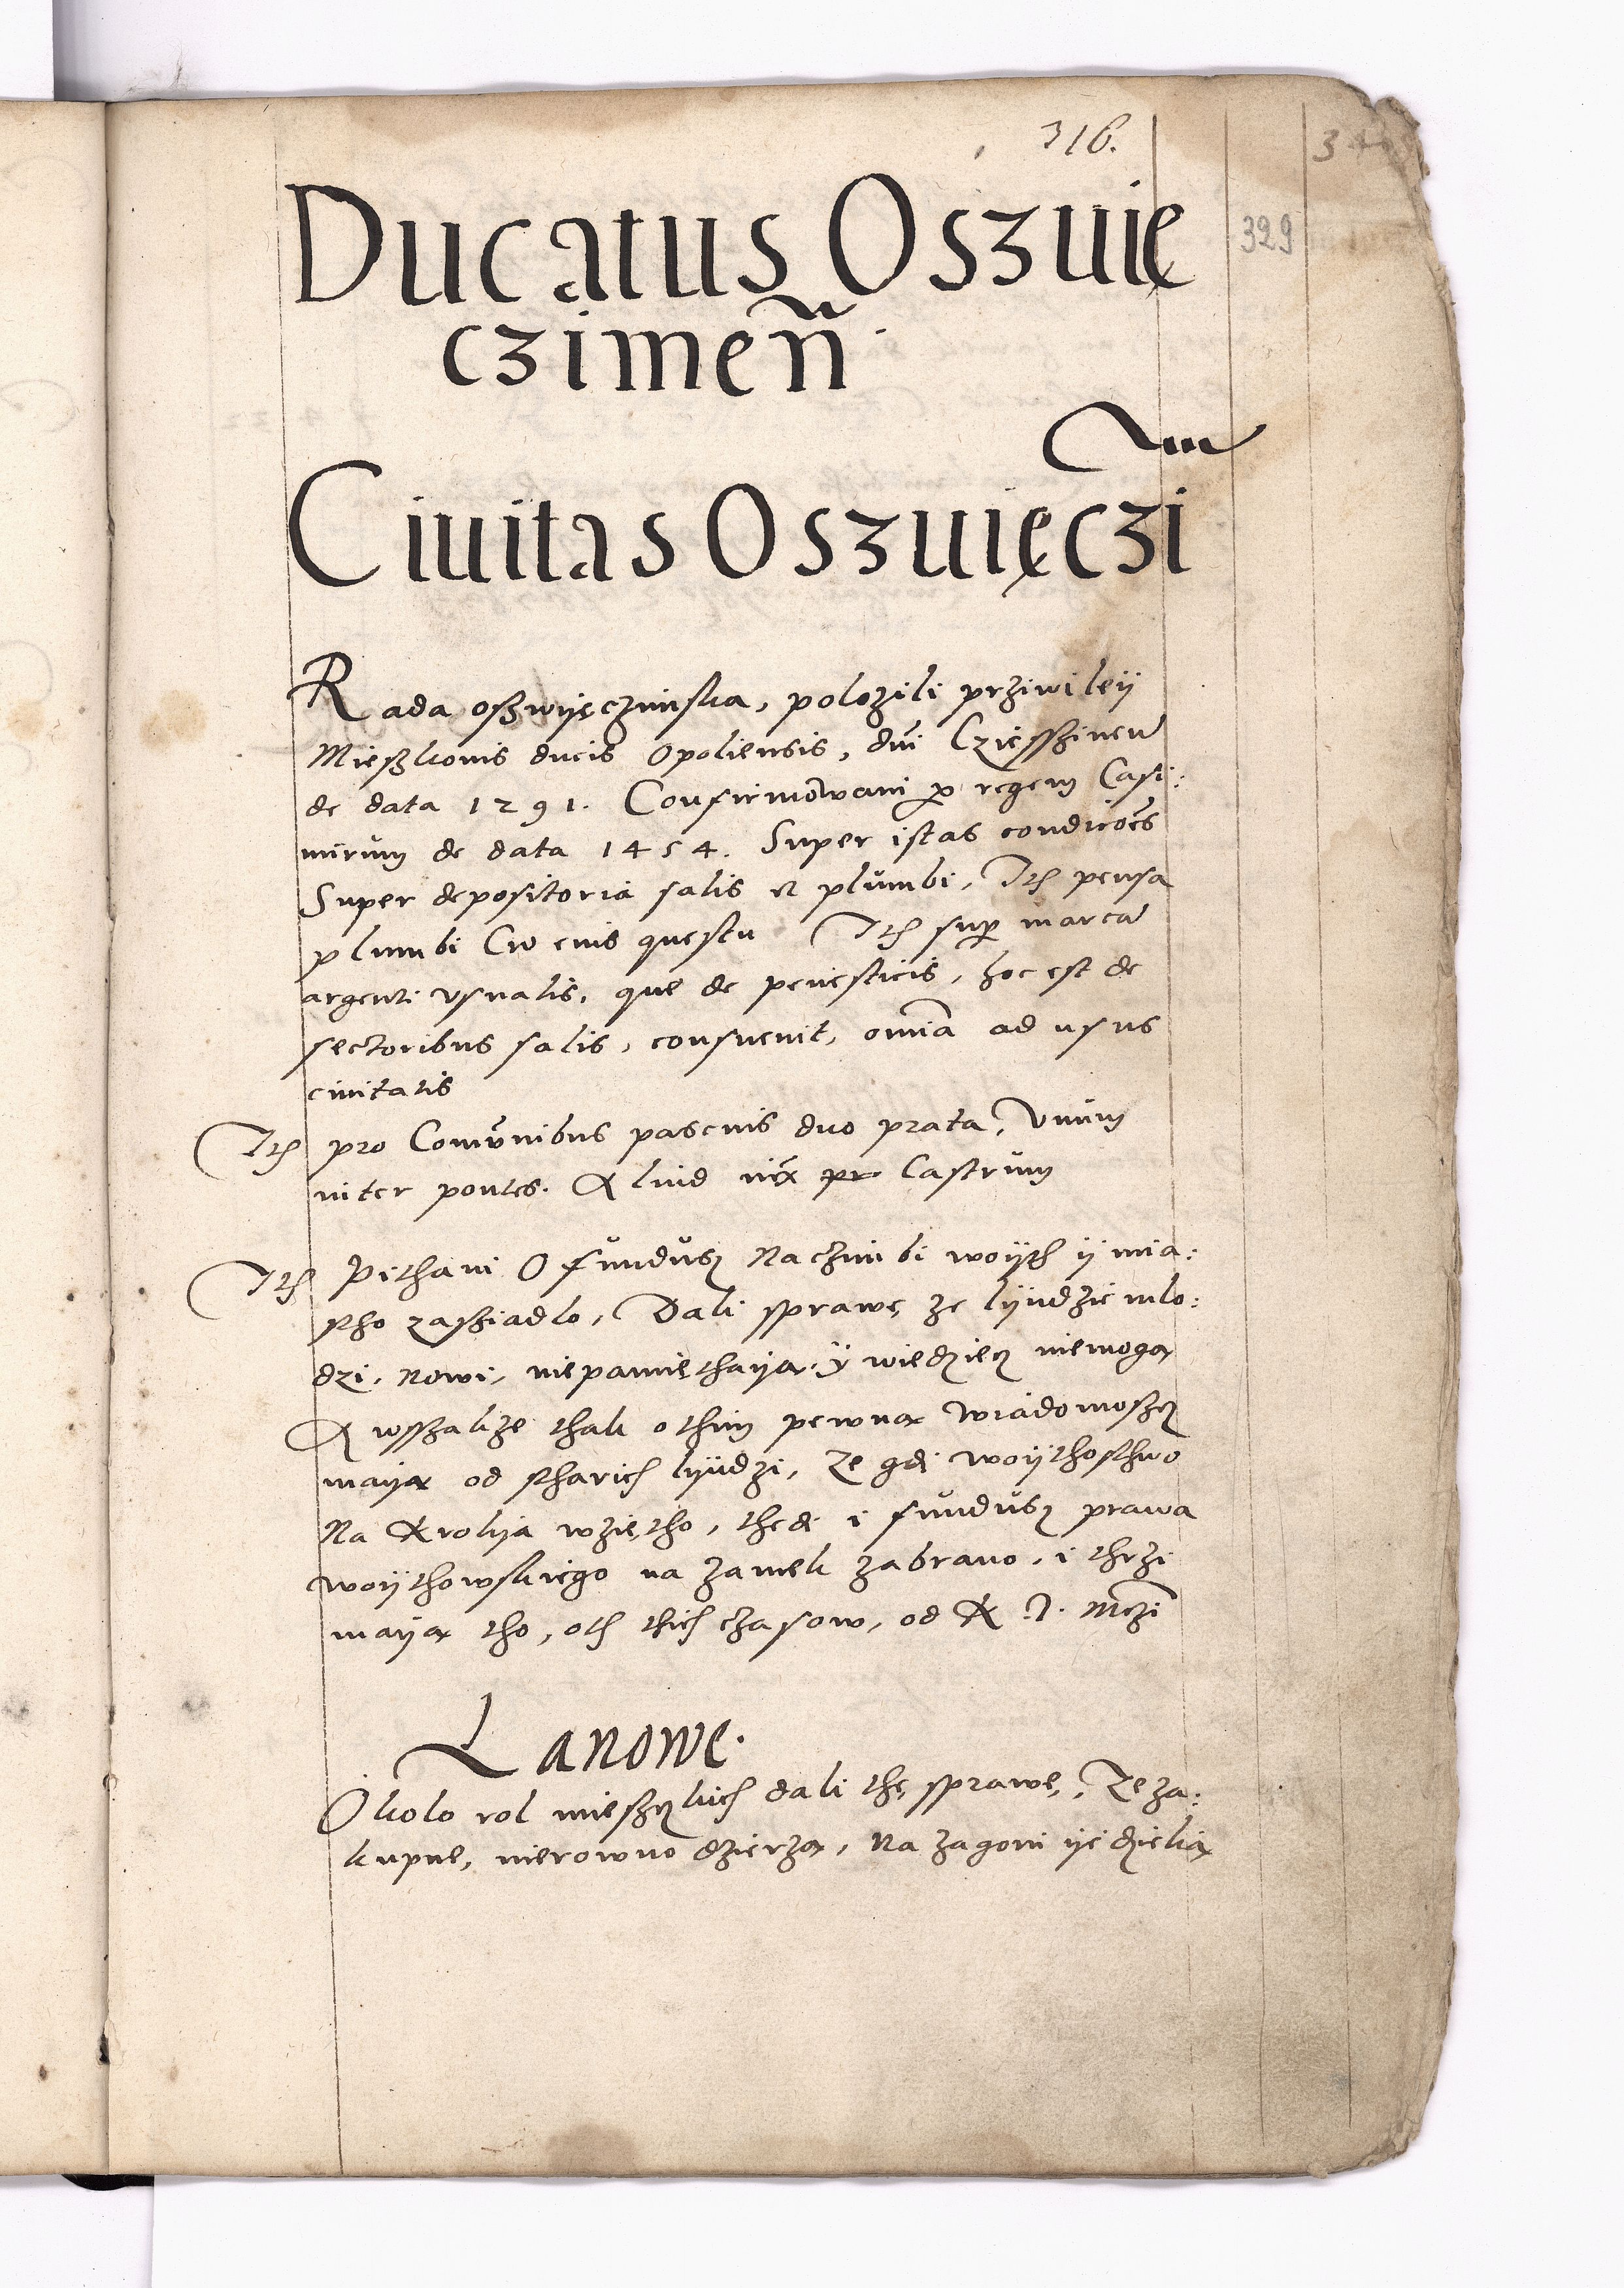 316.
329
Ducatus Oszuię
czimen̄
Ciuitas Oszuięczim
Rada oszwyęczimska, polozili prziwileÿ
Mieszkonis ducis Opoliensis, dni Cziesszinen
de data 1291. Confirmowani per regem Casi:
mirum de data 1454. Super istas condicōes
Super depositoria salis et plumbi, Ith pensa
plumbi Cū eius questu Ith sup marca
argenti vsualis, que de penesticis, hoc est de
sectoribus salis, consueuit, omīa ad usus
ciuitatis
Ith pro Comūnibus pascuis duo prata, Vnum
inter pontes. Aliud iux pr Castrum
Ith Pithani O fundusz Naczim bi woyth ÿ mia:
stho zasziadlo, Dali sprawę ze lyudzie mlo:
dzi, nowi, niepamięthaya. ÿ wiedziecz niemoga
A wsszakze thak othim pewna wiadomoszcz
maya od stharich lyudzi, ze gdi woythosthwo
Na Krolya wziętho, thedi i fundusz prawa
woythowskiego na zamek zabrano, i thrzi
maya tho, oth thich czasow, od K. J. Mczi
Lanowe.
Okolo rol mieszczkich dali thę sprawę, Ze za:
kupne, nierowno dzierza, Na zagoni ye dziela